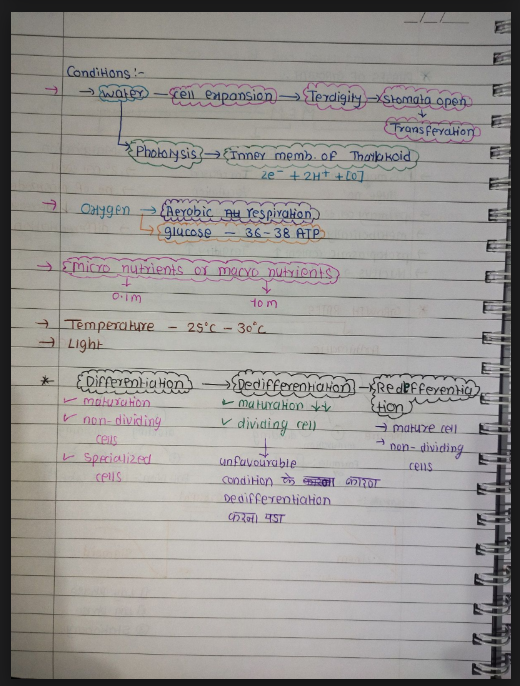 _/_/_
Conditions :-
→ → water — cell expansion → Terdigity → stomata open
↓
Transferation
Photolysis → Inner memb. of Thallokoid
2e⁻ + 2H⁺ + [O]
→ Oxygen → Aerobic respiration
→ glucose — 36-38 ATP
→ micro nutrients or macro nutrients
↓ ↓
0.1m 10m
→ Temperature — 25°c - 30°c
→ Light
* Differentiation → Dedifferentiation → Redifferentia
tion
✓ maturation ✓ maturation ↓↓
✓ non-dividing ✓ dividing cell → mature cell
cells ↓ → non-dividing
✓ specialized unfavourable cells
cells condition के कारण
Dedifferentiation
करना पडा